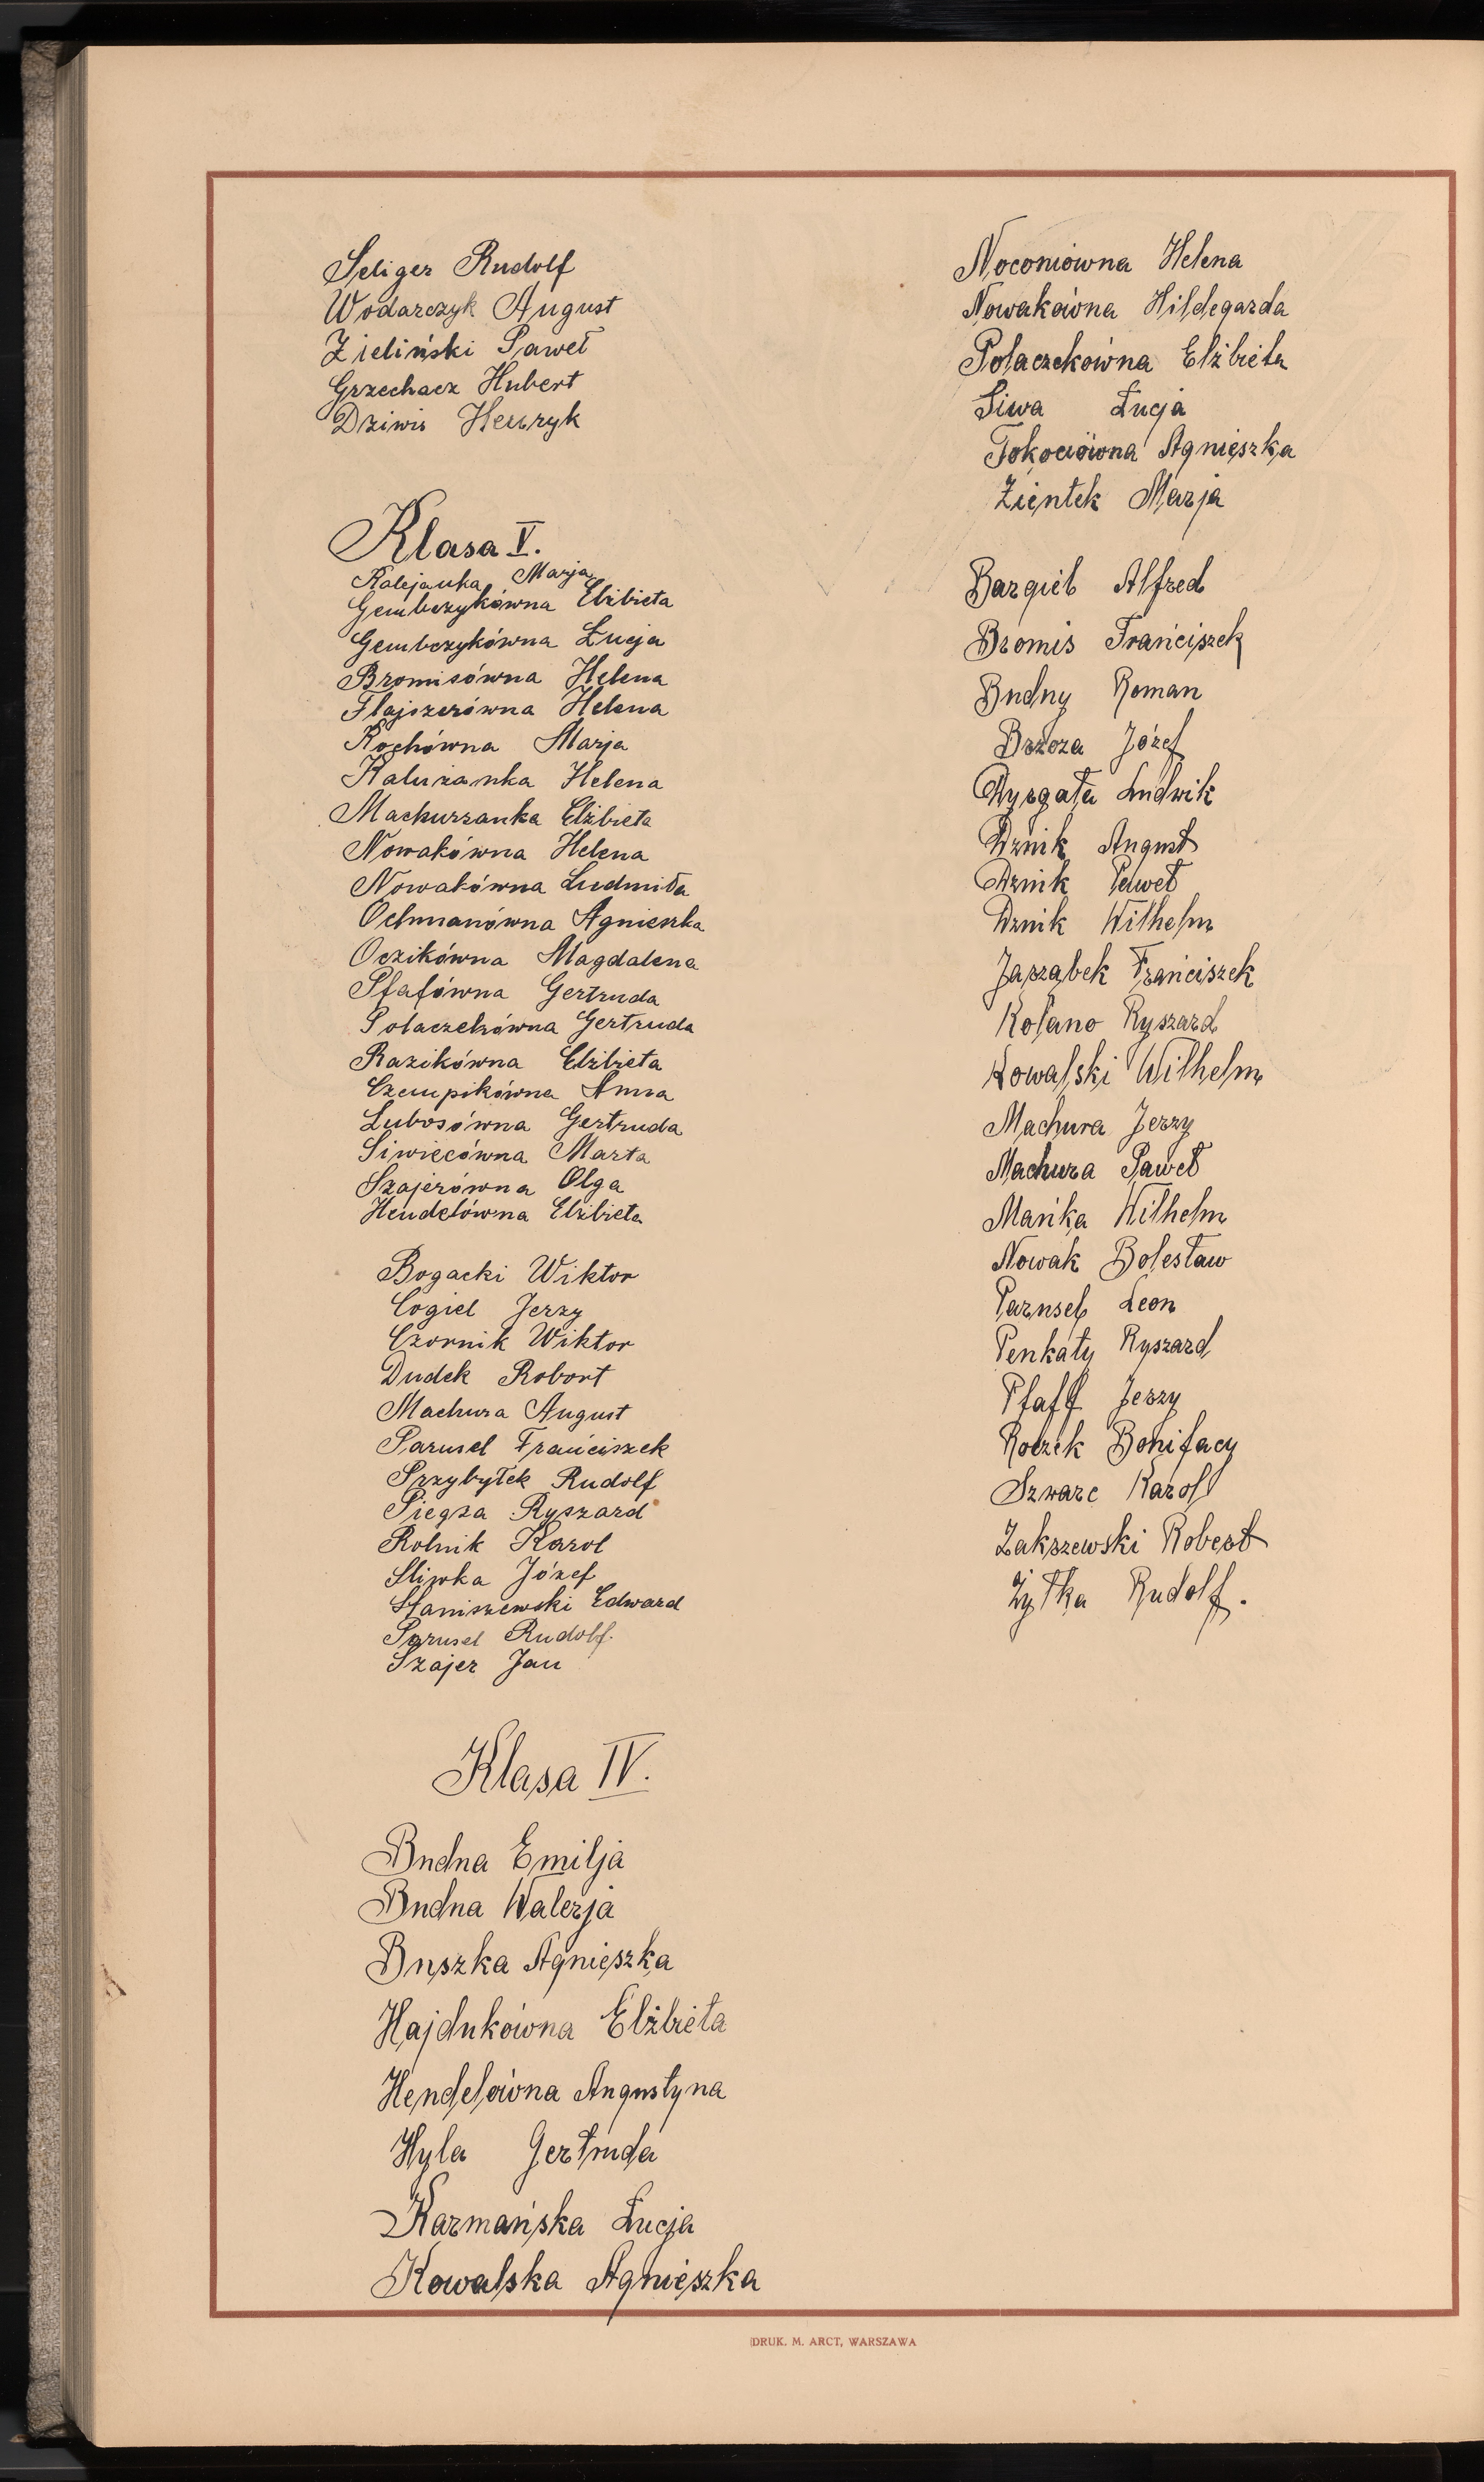 Seliger Rudolf
Wodarczyk August
Zieliński Paweł
Grzechacz Hubert
Dziwis Henryk
Klasa V.
Kalejanka Marja
Gembczykówna Elżbieta
Gembczykówna Łucja
Bromisówna Helena
Flajszerówna Helena
Kochówna Marja
Kalużanka Helena
Machurzanka Elżbieta
Nowakówna Helena
Nowakówna Ludmiła
Ochmanówna Agnieszka
Oczikówna Magdalena
Pfafówna Gertruda
Polaczekówna Gertruda
Razikówna Elżbieta
Czempikówna Anna
Lubosówna Gertruda
Siwiecówna Marta
Szajerówna Olga
Hendelówna Elżbieta
Bogacki Wiktor
Cogiel Jerzy
Czornik Wiktor
Dudek Robert
Machura August
Parusel Franciszek
Przybyłek Rudolf
Piegza Ryszard
Rolnik Karol
Sliwka Józef
Staniszewski Edward
Parusel Rudolf.
Szajer Jan
Klasa IV.
Budna Emilja
Budna Walerja
Buszka Agnieszka
Hajdukówna Elżbieta
Hendelówna Augustyna
Hyla Gertruda
Karmańska Łucja
Kowalska Agnieszka
Noconiówna Helena
Nowakówna Hildegarda
Polaczekówna Elżbieta
Siwa Łucja
Tokociówna Agnieszka
Zientek Marja
Bargieł Alfred
Bromis Franciszek
Budny Roman
Brzoza Józef
Dyrgała Ludwik
Dznik August
Dznik Paweł
Dznik Wilhelm
Jarząbek Franciszek
Kolano Ryszard
Kowalski Wilhelm
Machura Jerzy
Machura Paweł
Mańka Wilhelm
Nowak Bolesław
Parusel Leon
Penkaty Ryszard
Pfaff Jerzy
Rolzek Bonifacy
Szwarc Karol
Zakszewski Robert
Żyłka Rudolf.
DRUK. M. ARCT, WARSZAWA